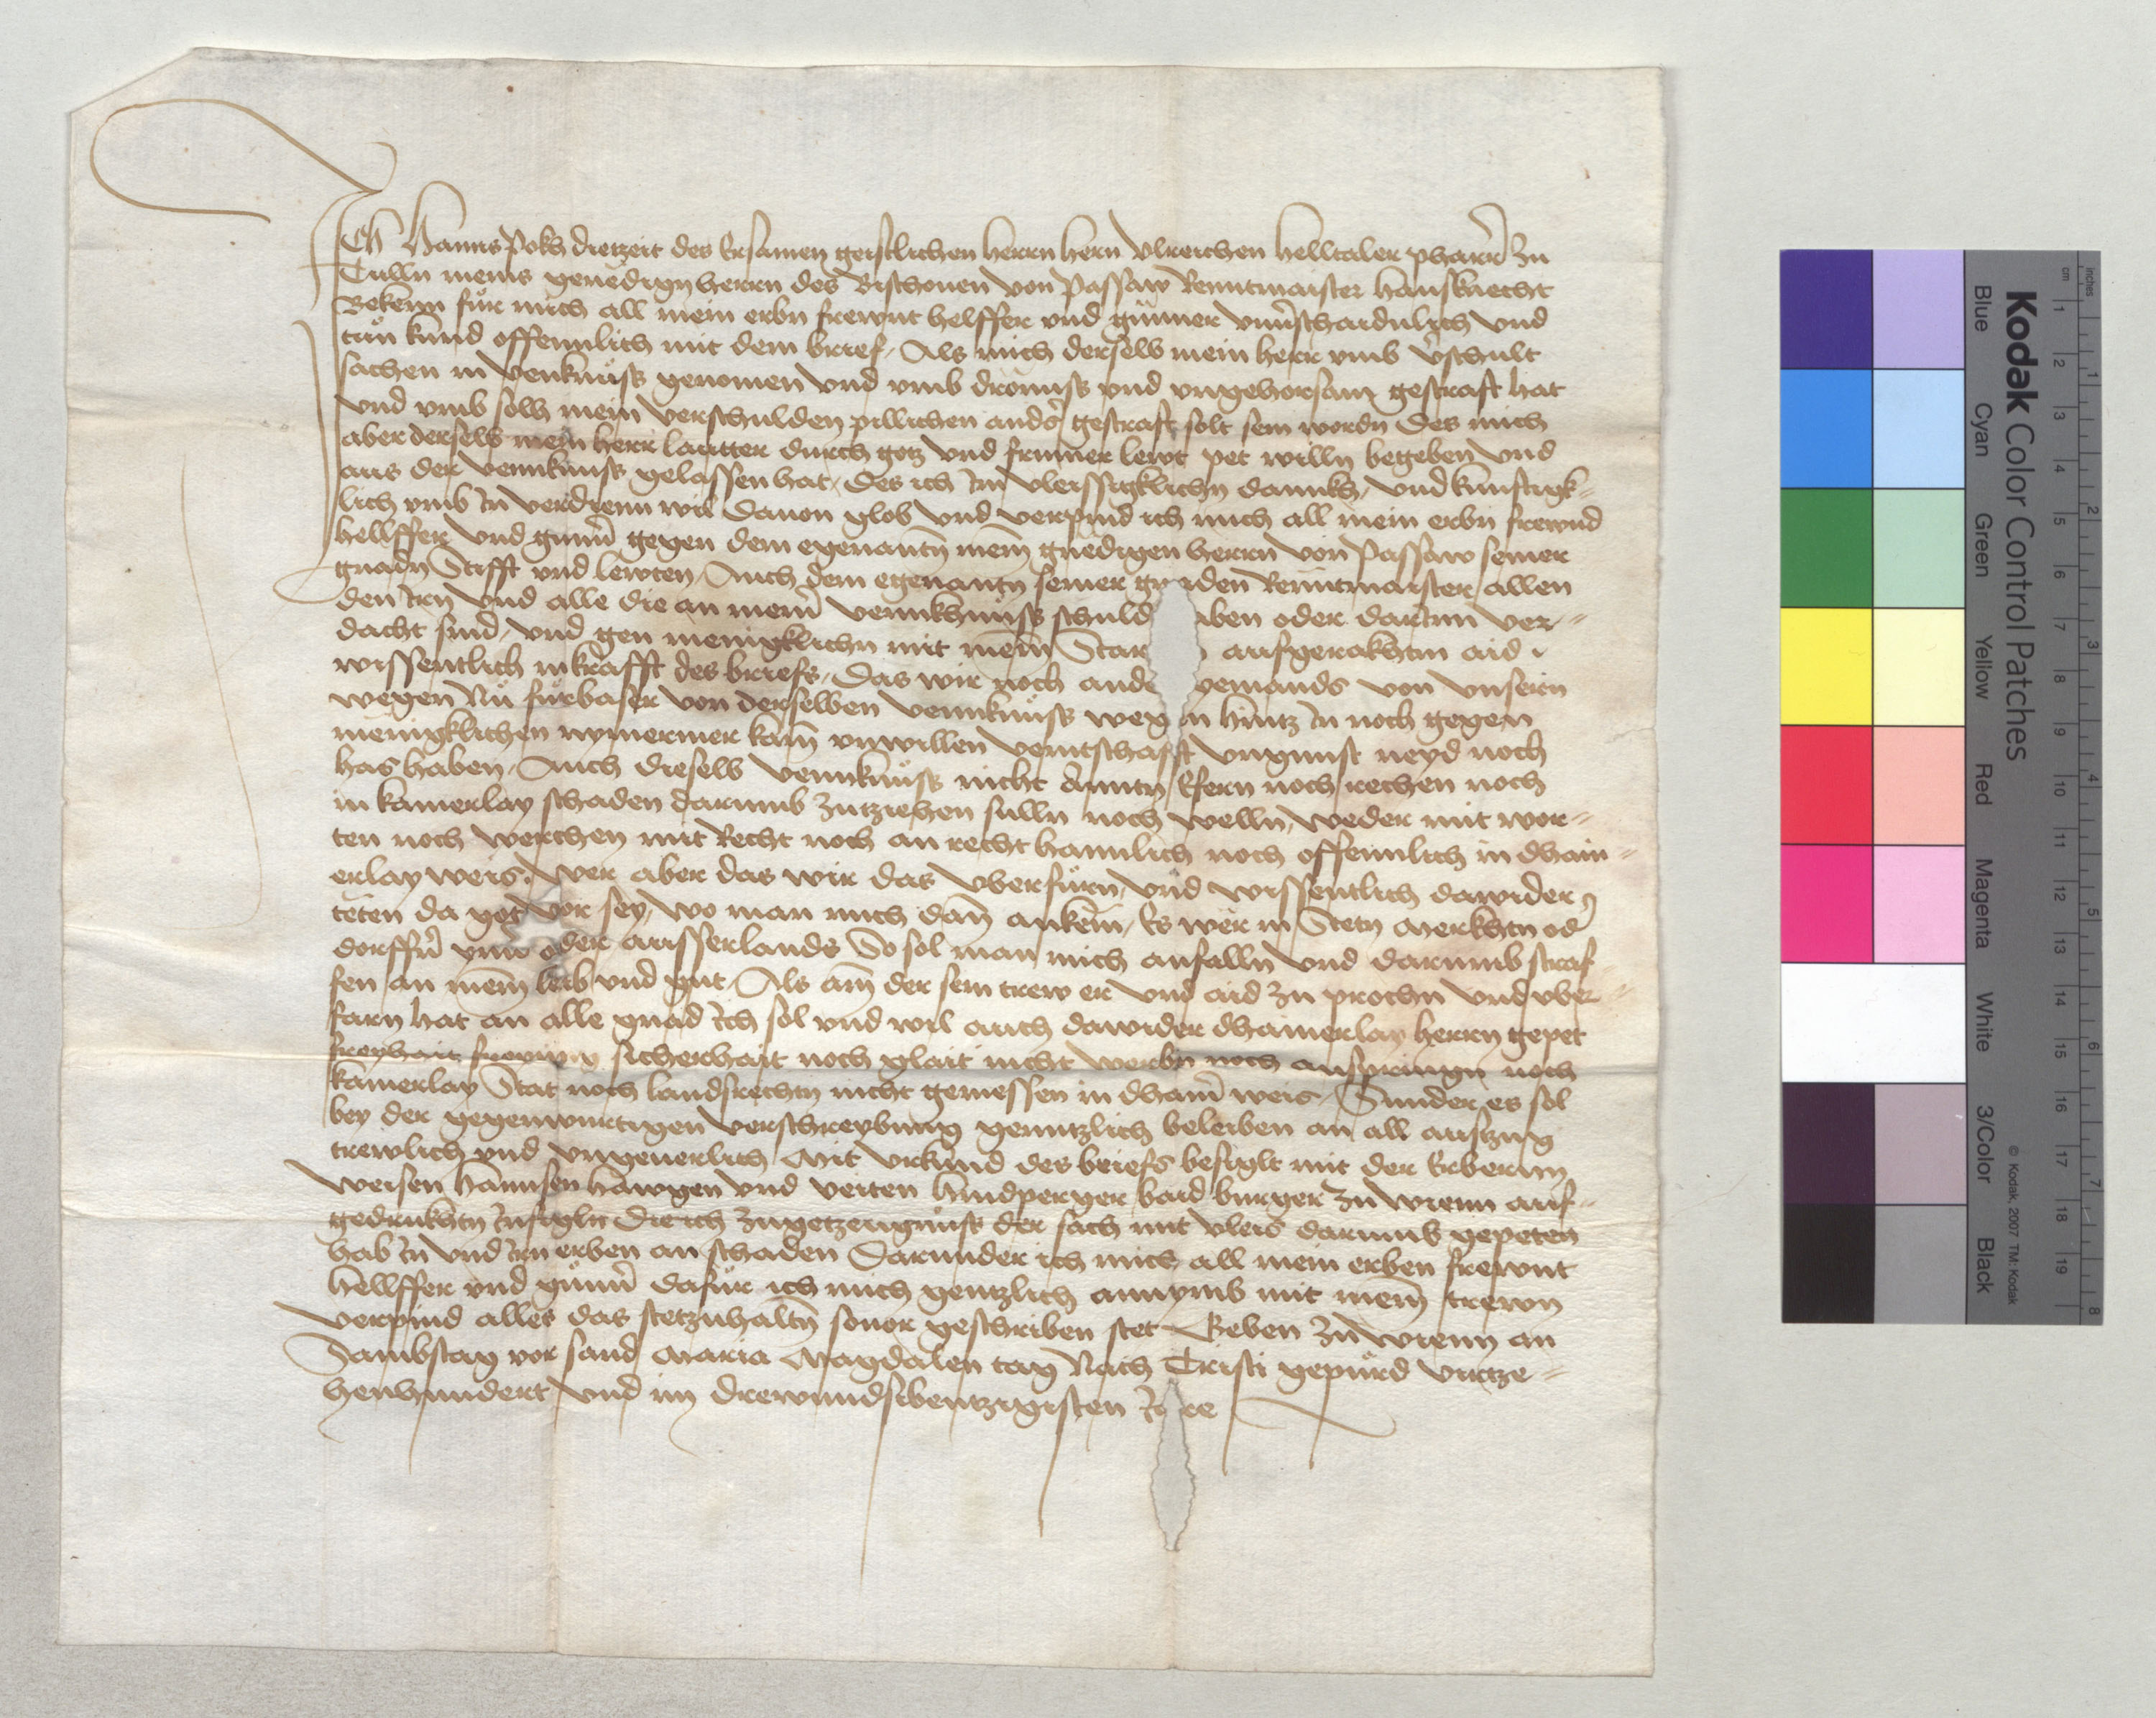 Ich Hanns Pokh dietzeit des Ersamen geistlichen herrn hern Vlreichen helltaler pharrer zu
Tulln meins genedign herrn des Bischouen von Passaw Renntmaister hausknecht
Bekenn für mich all mein erbn frewnt helffer vnd günner vnuerschaidnlich vnd
tun kund offennlich mit dem brief, Als mich derselb mein herr vmb verschult
sachen in venknüss genomen vnd vmb dronuss vnd vngehorsam gestraft hat
vnd vmb solh mein verschulden pillichen anders gestraft solt sein wordn Des mich
aber derselb mein herr lautter durch gotz vnd frumer lewt pet willn begeben vnd
aus der vennknuss gelassen hat, Des ich im vleissigklichn dannkh, vnd kunftigk-
lich vmb in verdienn wil Dauon glob vnd verpind ich mich all mein erbn frewnd
hellffer vnd gunner gegen dem egenantn meinem gnedigen herrn von Passaw seiner
gnadn Stifft vnd lewten, Auch dem egenantn seiner gnaden Renntmaister allen
den irn vnd alle die an meiner vennkhnüss schuld haben oder darinn ver-
dacht sind, vnd gen menigklichn mit meinem Star aufgerakhtm aid
wissentlich in krafft des briefs, Das wir noch ander yemands von vnsern
wegen Nu fürbaser von derselben vennknüss wegen hintz in noch gegen
menigklichen nymermer kain vnwillen veintschafft vngunst neyd noch
has haben, Auch dieselb vennknüss nicht äntn Efern noch rechen noch
in kainerlay schaden darumb zutziehen sulln noch welln, weder mit wor-
ten noch werchen mit Recht noch an recht hannlich noch offennlich in dhain-
erlay weis, Wer aber das wir das vberfürn, vnd wissentlich dawider
teten da got vor sey, wo man mich dann ankem, Es wer in Stetn Merkhtn oder
dorffern ynn oder ausserlands So sol man mich anfalln vnd darumb straf-
fen an meinem leib vnd gut, Als ain der sein trew er vnd aid zu prochn vnd vber-
farn hat an alle gnad Ich sol vnd wil auch dawider dhainerlay herrn gepet
freyhait freyung sicherhait noch glait nicht werbn noch anspringn noch
kainerlay Stat noch landsrechtn nicht geniessen in dhainer weis, Sunder es sol
bey der gegenwurtigen verschreybung genntzlich beleiben an all auszug
trewlich vnd vngeuerlich Mit vrkund des briefs besiglt mit der Erbern
weisen hannsen hawgen vnd veiten hindperger baid burger zu wienn auf-
gedrukhtn Insigln Die ich zugetzeugnüss der sach mit vleis darumb gepeten
hab in vnd irn erben an schaden Darunder ich mich all mein erben frewnt
hellffer vnd günner dafür ich mich genntzlich annymb mit meinen trewn
verpind alles das stetzuhaltn souor geschriben stet Geben zu wienn an
Sambstag vor sand Maria Magdalen tag Nach Cristi gepurd viertze-
henhundert vnd im drewundsibentzigisten Jare
Kodak Color Control Patches
Blue Cyan Green Yellow Red Magenta White 3/Color Black
© Kodak, 2007 TM: Kodak
cm 1 2 3 4 5 6 7 8 9 10 11 12 13 14 15 16 17 18 19
inches 1 2 3 4 5 6 7 8